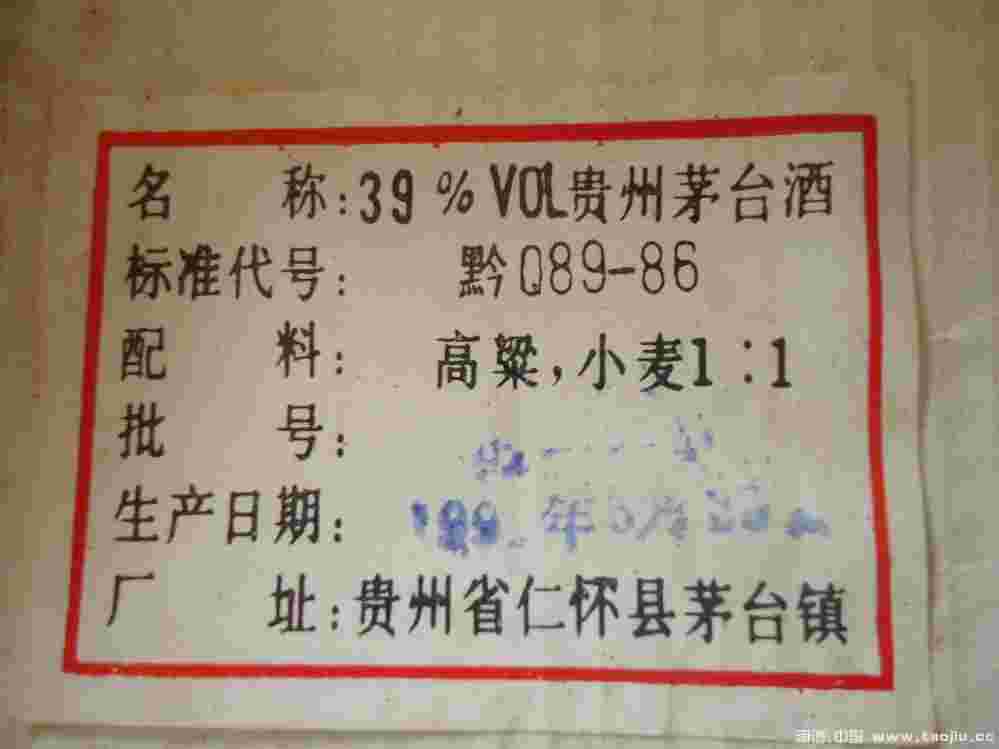 名 称:39%VOL贵州茅台酒
标准代号: 黔Q89-86
配 料: 高粱,小麦1:1
批 号:
生产日期: 199 年 月
厂 址:贵州省仁怀县茅台镇
www.taojiu.cc